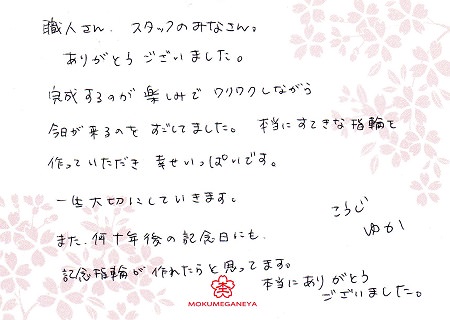 職人さん、スタッフのみなさん。
ありがとうございました。
完成するのが楽しみでワクワクしながら
今日が来るのをすごしてました。本当にすてきな指輪を
作っていただき幸せいっぱいです。
一生大切にしていきます。
また、何十年後の記念日にも、
記念指輪が作れたらと思ってます。
本当にありがとう
ございました。
こうじ
ゆか
MOKUMEGANEYA